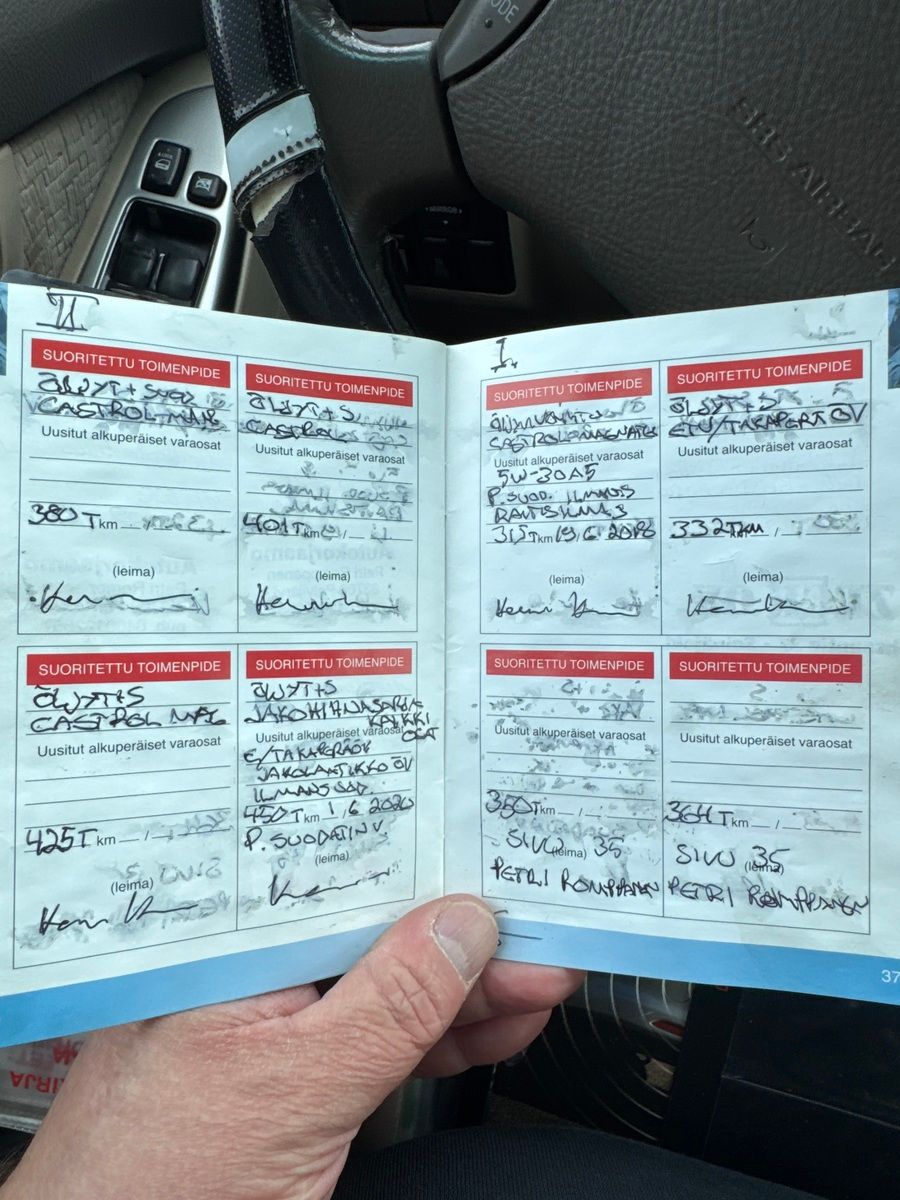 SRS AIRBAG
II
SUORITETTU TOIMENPIDE
ÖLJYT+
CASTROL MAG
Uusitut alkuperäiset varaosat
380 T km
(leima)
SUORITETTU TOIMENPIDE
ÖLJYT+S
CASTROL
Uusitut alkuperäiset varaosat
401 T km
(leima)
SUORITETTU TOIMENPIDE
ÖLJYT+S
CASTROL MAG
Uusitut alkuperäiset varaosat
425 T km
(leima)
SUORITETTU TOIMENPIDE
ÖLJYT+S
JAKOHIHNASARJA
KAIKKI
Uusitut alkuperäiset varaosat
OSAT
E/TAKAPERÄÖV
JAKOLAATIKKO ÖV
ILMANSUOD.
450 T km 1/6 2020
P. SUODATIN V.
(leima)
I
SUORITETTU TOIMENPIDE
CASTROL MAGNATEC
Uusitut alkuperäiset varaosat
5W-30 A5
P. SUOD. ILMANS
RAITISILMAS
315 T km 19/6 2018
(leima)
SUORITETTU TOIMENPIDE
ÖLJYT+S
ETU/TAKAPERÄT ÖV
Uusitut alkuperäiset varaosat
332 TKM
(leima)
SUORITETTU TOIMENPIDE
Uusitut alkuperäiset varaosat
350 T km
SIVU 35
(leima)
PETRI ROMPPANEN
SUORITETTU TOIMENPIDE
Uusitut alkuperäiset varaosat
364 T km
SIVU 35
(leima)
PETRI ROMPPANEN
37